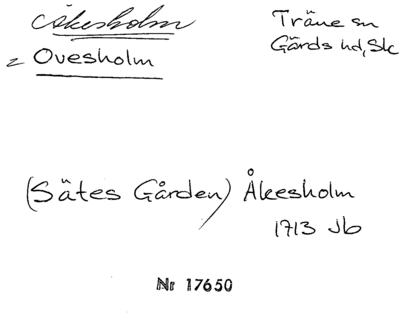 Åkesholm
Träne sn
Gärds hd, Sk
2 Ovesholm
(Sätes Gården) Åkesholm
1713 Jb
Nr 17650